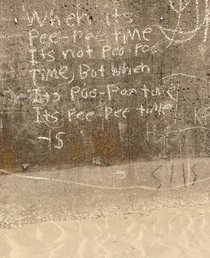 When its
Pee-pee time
Its not Poo-Poo
Time, But when
Its Poo-Poo time
Its Pee-pee time
-JS